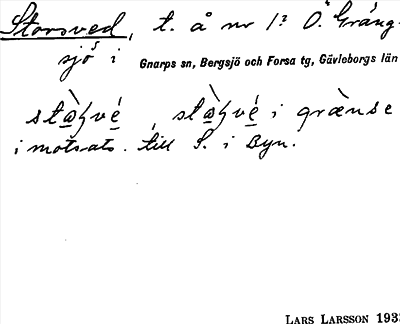 Storsved, t. å nr 1² Ö. Gräng-
sjö i Gnarps sn, Bergsjö och Forsa tg, Gävleborgs län
i grænse
i motsats till S. i Byn.
LARS LARSSON 193